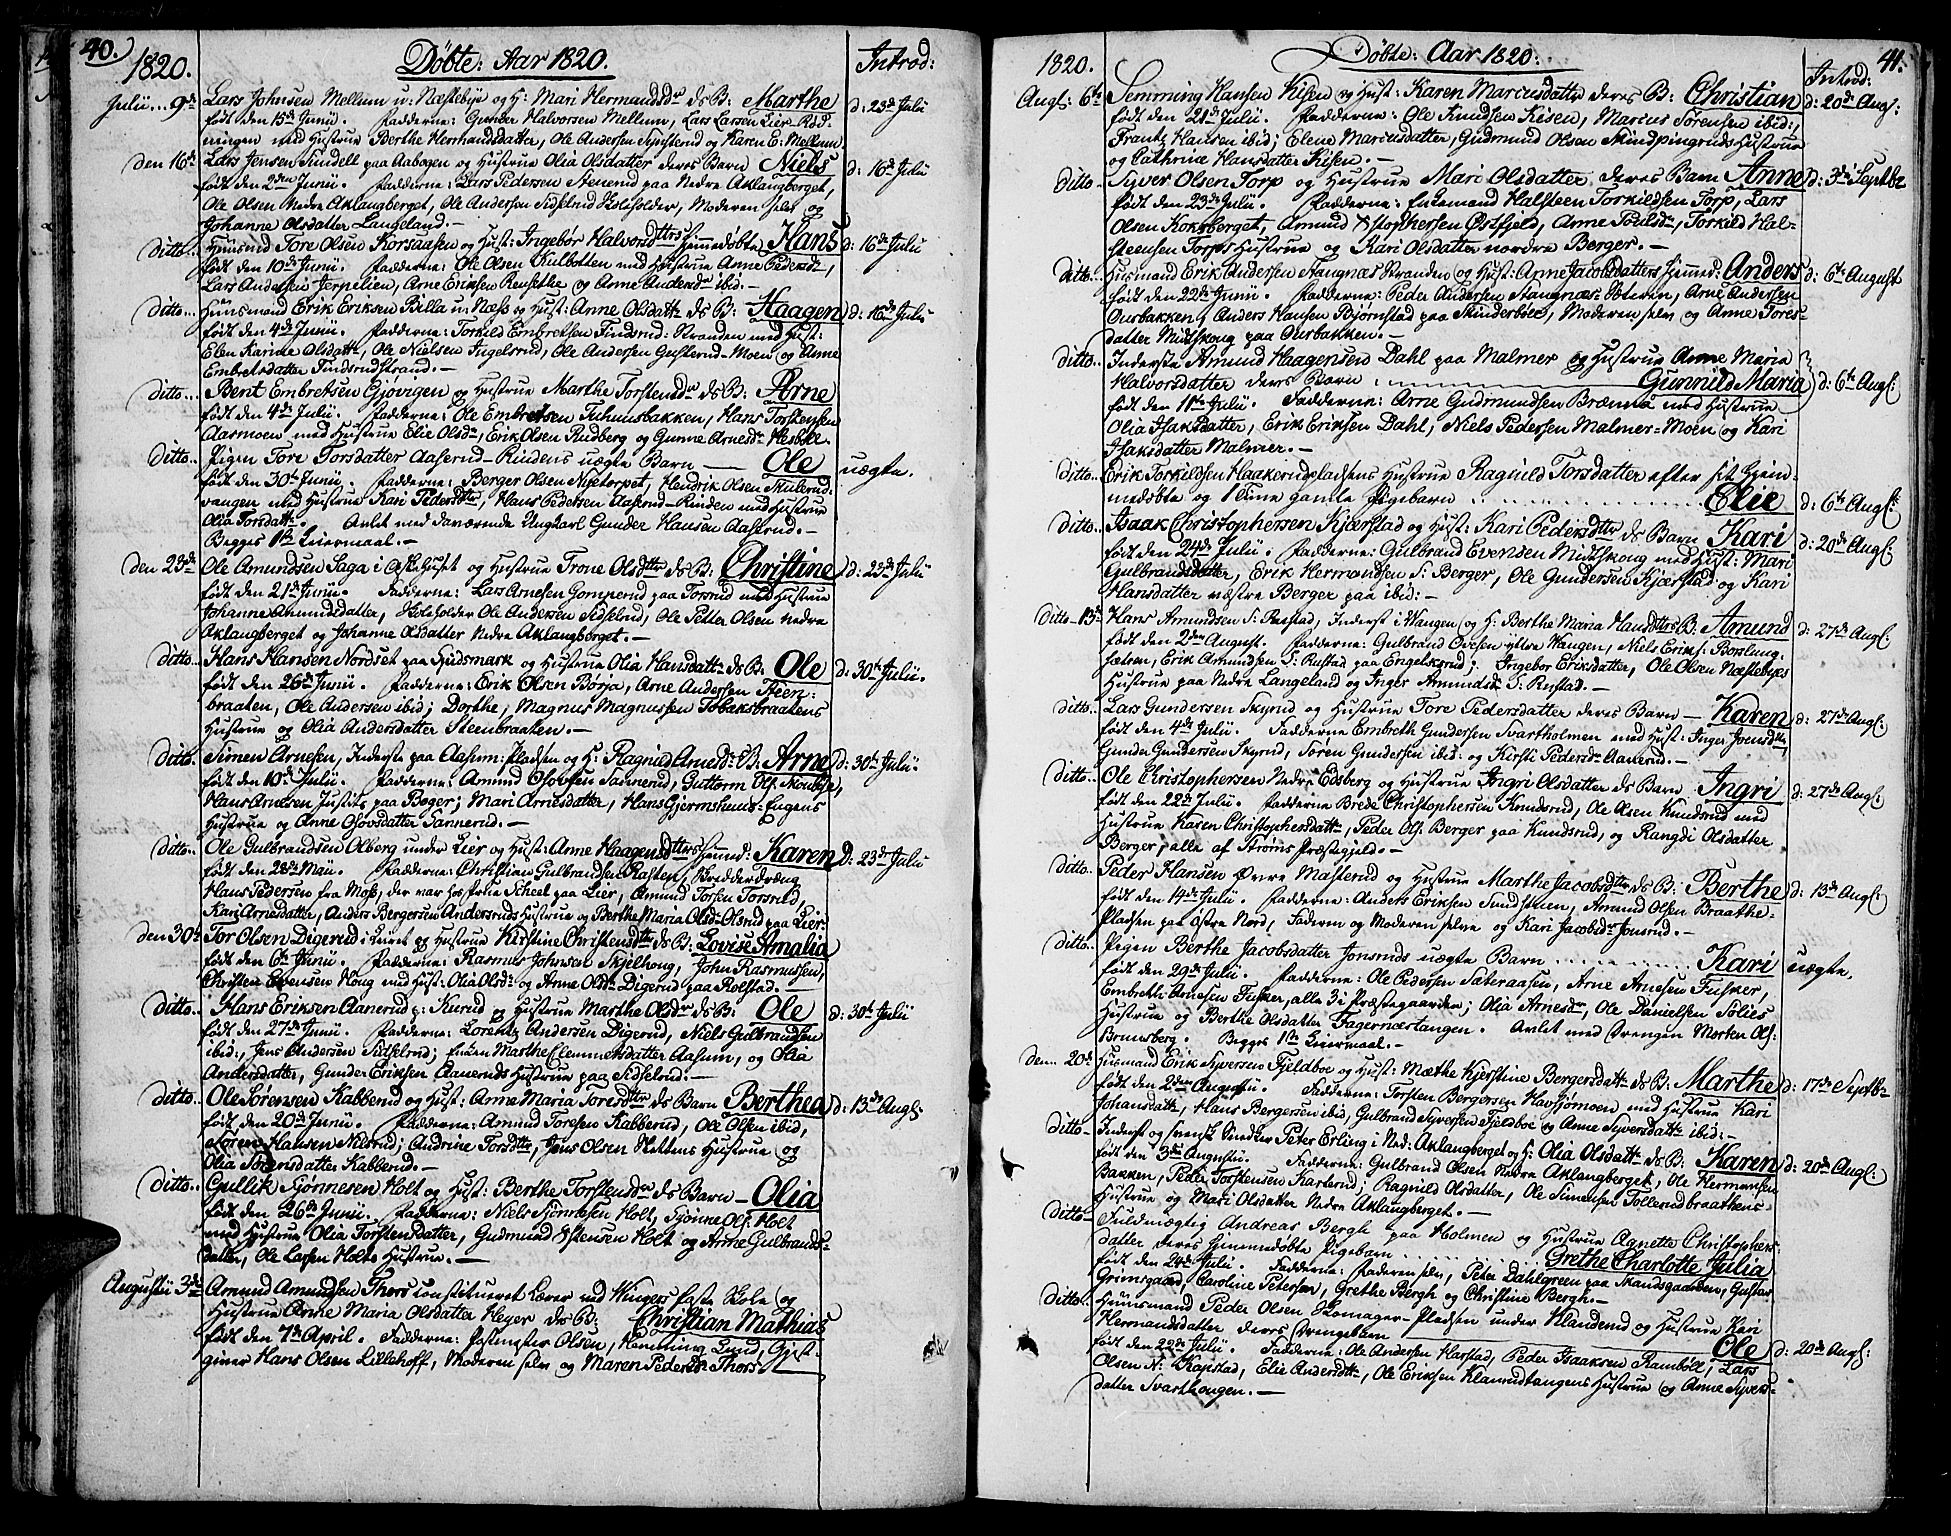 40.
1820. Döbte: Aar 1820. Introd:
Julii... 9de Lars Johnsen Mellum u: Næstebye og H: Mari Hermandsdr ds B: Marthe d: 23de Julii
født den 15de Junii. Fadderne: Gunder Halvorsen Mellum, Lars Larsen Lier
med Hustrue Berthe Hermandsdatter, Ole Andersen og Karen E: Mellum
den 16de Lars Jensen Sindell paa Aabogen og Hustrue Olia Olsdatter deres Barn Niels d: 16de Julii
født den 2den Junii. Fadderne: Lars Pedersen Stenerud paa Nedre Aklangberget,
Ole Olsen Nedre Aklangberget, Ole Andersen Sidselrud Skoleholder, Moderen selv og
Johanne Olsdatter Langeland.
ditto.. Huusmd Tore Olsen Korsaasen og Hust: Ingebor Halvorsdtters hjemmedøbte Hans d: 16de Julii
født den 10de Junii. Fadderne: Ole Olsen Kulbotten med Hustrue Anne Pedersdr,
Lars Andersen Jerpelien, Arne Eriksen og Anne Andersdr ibid:
ditto... Huusmand Erik Eriksen Billa u: Næss og Hust: Anne Olsdatr ds B: Haagen d: 16de Julii
født den 4de Junii. Fadderne: Torkild Embretsen Findsrud-Stranden med Hust:
Elen Karine Olsdatr, Ole Nielsen Ingelsrud, Ole Andersen Gusterud-Moen og Anne
Embretsdatter Findsrudstrand.
ditto... Bent Embretsen Gjövigen og Hustrue Marthe Torstensdr ds B: Arne
født den 4de Julii. Fadderne: Ole Embretsen Tuhuusbakken, Hans Torstensen
Aasmoen med Hustrue Elie Olsdr, Erik Olsen Rudberg og Gunne Arnesdr
ditto.. Pigen Tore Torsdatter Aaserud-Rudens uægte Barn Ole uægte.
født den 30te Junii. Fadderne: Berger Olsen Nistorpet, Hendrik Olsen Skulerud-
vangen med Hustrue Kari Pedersdtr, Hans Pedersen Aaserud-Ruden med Hustrue
Olia Torsdatr. Avlet med daværende Ungkarl Gunder Hansen Aaserud.
Begges 1ste Leiermaal.
den 23de Ole Amundsen Saga i Askehuset og Hustrue Trone Olsdtr ds B: Christine d: 23de Julii
født den 21de Junii. Fadderne: Lars Arnesen Gomperud paa Torsrud med Hustrue
Johanne Amundsdatter, Skoleholder Ole Andersen Sidselrud, Ole Petter Olsen Nedre
Aklangberget og Johanne Olsdatter Nedre Aklangberget.
ditto.. Hans Hansen Nordset paa Eidsmark og Hustrue Olia Hansdatr ds B: Ole d: 30te Julii.
født den 26de Junii. Fadderne: Erik Olsen Börja, Arne Andersen Steen:
braaten, Ole Andersen ibid; Dorthe, Magnus Magnussen Tobaksbraatens
Hustrue og Olia Andersdatter Steenbraaten.
ditto.. Simen Arnesen, Inderste paa Aasum-Pladsen og H: Ragnild Arnesdr: B: Arne d: 30te Julii.
født den 10de Julii. Fadderne: Amund Olovsen Sannerud, Guttorm Ols: Moubye,
Hans Arnesen Justits paa Boger; Mari Arnesdatter, Hans Gjermshuus-Engens
Hustrue og Anne Olovsdatter Sannerud.
ditto.. Ole Gulbrandsen Olberg under Lier og Hust: Anne Haagensdtters hjemmed: Karen d: 23de Julii
født den 28de Maii. Fadderne: Christian Gulbrandsen Kasten,
Hans Pedersen fra Moss, der var hos Frue Scheel paa Lier, Amund Torsen Torsrud,
Kari Arnesdatter, Anders Bergersen Andersruds Hustrue og Berthe Maria Olsdr Olsrud paa Lier
den 30te Tor Olsen Digerud i Lunet og Hustrue Kirstine Christensdtr ds B: Lovise Amalia
født den 6te Junii. Fadderne: Rasmus Johnsen Skjelhoug, John Rasmussen,
Christen Evensen Houg med Hust: Olia Olsdr og Anne Olsdr Digerud paa Rolstad.
ditto.. Hans Eriksen Aanerud p: Kurud og Hustrue Marthe Olsdr ds B: Ole d: 30te Julii
født den 27de Junii. Fadderne: Lorentz Andersen Digerud, Niels Gulbrandsen
ibid:, Jens Andersen Sidselrud; Enken Marthe Clemmetsdatter Aasum, og Olia
Andersdatter, Gunder Eriksen Aaneruds Hustrue paa Sidselrud.
ditto.. Ole Sørensen Kabberud og Hust: Anne Maria Toresdtr ds Barn Berthea d: 13de Augs:
født den 20de Junii. Fadderne: Amund Toresen Kabberud, Ole Olsen ibid,
Søren Hansen Nilsrud; Andrine Torsdtr, Jens Olsen Slettens Hustrue og
Olia Sørensdatter Kabberud.
ditto.. Gullik Sjönnesen Holt og Hust: Berthe Torstensdr ds Barn Olia
født den 26de Junii. Fadderne: Niels Sjönnesen Holt, Sjönne Ols: Holt
med Hustrue Olia Torstensdatter, Gudmund Ostensen Holt og Anne Gulbrands-
datter, Ole Larsen Holts Hustrue.
Augustii 3de Amund Amundsen Thors constitueret Lærer ved Wingers faste Skole og
Hustrue Anne Maria Olsdatter Heyer ds B: Christian Mathias
født den 7de April. Fadderne: Postmester Olsen, Henning Lund, Gjest-
giver Hans Olsen Lillehoff, Moderen selv og Maren Pedersdr Thors
41.
1820. Döbte: Aar 1820. Introd:
Augs: 6te Semming Hansen Kisen og Hust: Karen Marcusdatter deres B: Christian d: 20de Augs:
født den 21de Julii. Fadderne: Ole Knudsen Kisen, Marcus Sørensen ibid:,
Frantz Hansen ibid; Elene Marcusdatter, Gudmund Olsen Hustrue
og Cathrine Hansdatter Kisen.
ditto.. Syver Olsen Torp og Hustrue Mari Olsdatter deres Barn Anne d: 3de Septbr
født den 23de Julii. Fadderne: Enkemand Halsteen Torkildsen Torp, Lars
Olsen Koksberget, Amund Østfjeld, Anne Povelsdr, Torkild Hal-
steensen Torps Hustrue og Kari Olsdatter nordre Berger.
ditto.. Husmand Erik Andersen Stangnæs Stranden og Hust: Anne Jacobsdatters hjemmed: Anders d: 6te August
født den 22de Junii. Fadderne: Peder Andersen Stangnæs, Arne Andersen
Ourbakken, Anders Hansen Björnstad paa Skinderboel, Moderen selv og Anne Tores-
datter Midtskoug paa Ourbakken.
ditto.. Inderste Amund Haagensen Dahl paa Malmer og Hustrue Anne Maria
Halvorsdatter deres Barn Gunnild Maria d: 6te Augs:
født den 11te Julii. Fadderne: Arne Gudmundsen Brænna med Hustrue
Olia Isaksdatter, Erik Eriksen Dahl, Niels Pedersen Malmer-Moen og Kari
Isaksdatter Malmer.
ditto.. Erik Torkildsen Haakerudpladsens Hustrue Ragnild Torsdatter efter sit hjem-
medøbte og 1 Time gamle Pigebarn Elie d: 6te Augs:
ditto.. Isaak Christophersen Kjærstad og Hust: Kari Pedersdtr ds Barn Kari d: 20de Augs:
født den 24de Julii. Fadderne: Gulbrand Evensen Midtskoug med Hust: Mari
Gulbrandsdatter, Erik Hermandsen S: Berger, Ole Gundersen Kjærstad og Kari
Hansdatter vestre Berger paa ibid:
ditto 13de Hans Amundsen S: Rustad, Inderst i Wangen og H: Berthe Maria Hansdtters B: Amund d: 27de Augs:
født den 2den August. Fadderne: Gulbrand Ovesen ytre Wangen, Niels Eriks: Borslung-
sætren, Erik Amundsen S: Rustad paa Engelskrud; Ingebor Eriksdatter, Ole Olsen Næstebyes
Hustrue paa Nedre Langeland og Inger Amundsdr S: Rustad.
ditto.. Lars Gundersen Skyrud og Hustrue Tore Pedersdatter deres Barn Karen d: 27de Augs:
født den 4de Julii. Fadderne Embreth Gundersen Svartholmen med Hust: Inger Joensdtr,
Gunder Gundersen Skyrud, Søren Gundersen ibid: og Kirsti Pedersdr Aanerud.
ditto.. Ole Christophersen Nedre Edsberg og Hustrue Ingri Olsdatter ds Barn Ingri d: 27de Augs:
født den 22de Julii. Fadderne Brede Christophersen Knudsrud, Ole Olsen Knudsrud med
Hustrue Karen Christophersdatr, Peder Ols: Berger paa Knudsrud, og Rangdi Olsdatter
Berger, alle af Ströms Præstegjeld.
ditto.. Peder Hansen Øvre Masterud og Hustrue Marthe Jacobsdtr ds B: Berthe d: 13de Augs:
født den 14de Julii. Fadderne: Anders Eriksen Sundhuen, Amund Olsen Braathe-
Pladsen paa østre Nord, Faderen og Moderen selve og Kari Jacobsdr Jonsrud.
ditto.. Pigen Berthe Jacobsdatter Jonsruds uægte Barn Kari uægte.
født den 29de Julii. Fadderne: Ole Pedersen Sateraasen, Arne Arnesen Fusker,
Embreth Arnesen Fusker, alle 3 i Præstegaarden; Olia Arnesdr, Ole Danielsen Solies
Hustrue og Berthe Olsdatter Fagernæstangen. Avlet med Drengen Morten Ols:
Brunsberg. Begges 1ste Leiermaal.
den.. 20de Husmand Erik Syversen Fjeldboe og Hust: Mæthe Kjerstine Bergersdatr ds B: Marthe d: 17de Septbr
født den 2den Augustii. Fadderne: Torsten Bergersen Havsjømoen med Hustrue Kari
Johansdatr, Hans Bergersen ibid, Gulbrand Syversen Fjeldboe og Anne Syversdatr ibid:
ditto.. Inderst og Svensk Snedker Peter Erling i Ned: Aklangberget og H: Olia Olsdatr ds B: Karen d: 20de Augs:
født den 3de Augustii. Fadderne: Gulbrand Olsen Nedre Aklangberget, Ole Hermansen
Bakken, Peder Torstensen Karterud; Ragnild Olsdatter, Ole Simensen Tollerudbraathens
Hustrue og Mari Olsdatter Nedre Aklangberget.
ditto.. Fuldmægtig Andreas Bergh paa Holmen og Hustrue Agnette Christophers:
datter deres hjemmedøbte Pigebarn Grethe Charlotte Julia
født den 24de Julii. Fadderne: Faderen selv, Peter Dahlgreen paa Skandsgaarden, Gustav
Grimsgaard, Caroline Petersen, Grethe Bergh og Christine Bergh.
ditto.. Huusmand Peder Olsen Skomager-Pladsen under Klanderud og Hustrue Kari
Hermandsdatter deres Drengebarn Ole d: 20de Augs:
født den 22de Julii. Fadderne: Ole Andersen Harstad, Peder Isaaksen Ramböll, Lars
Olsen N: Rapstad, Elie Andersdtr, Ole Eriksen Klanrudtangens Hustrue og Anne Syvers-
datter Svarthougen.